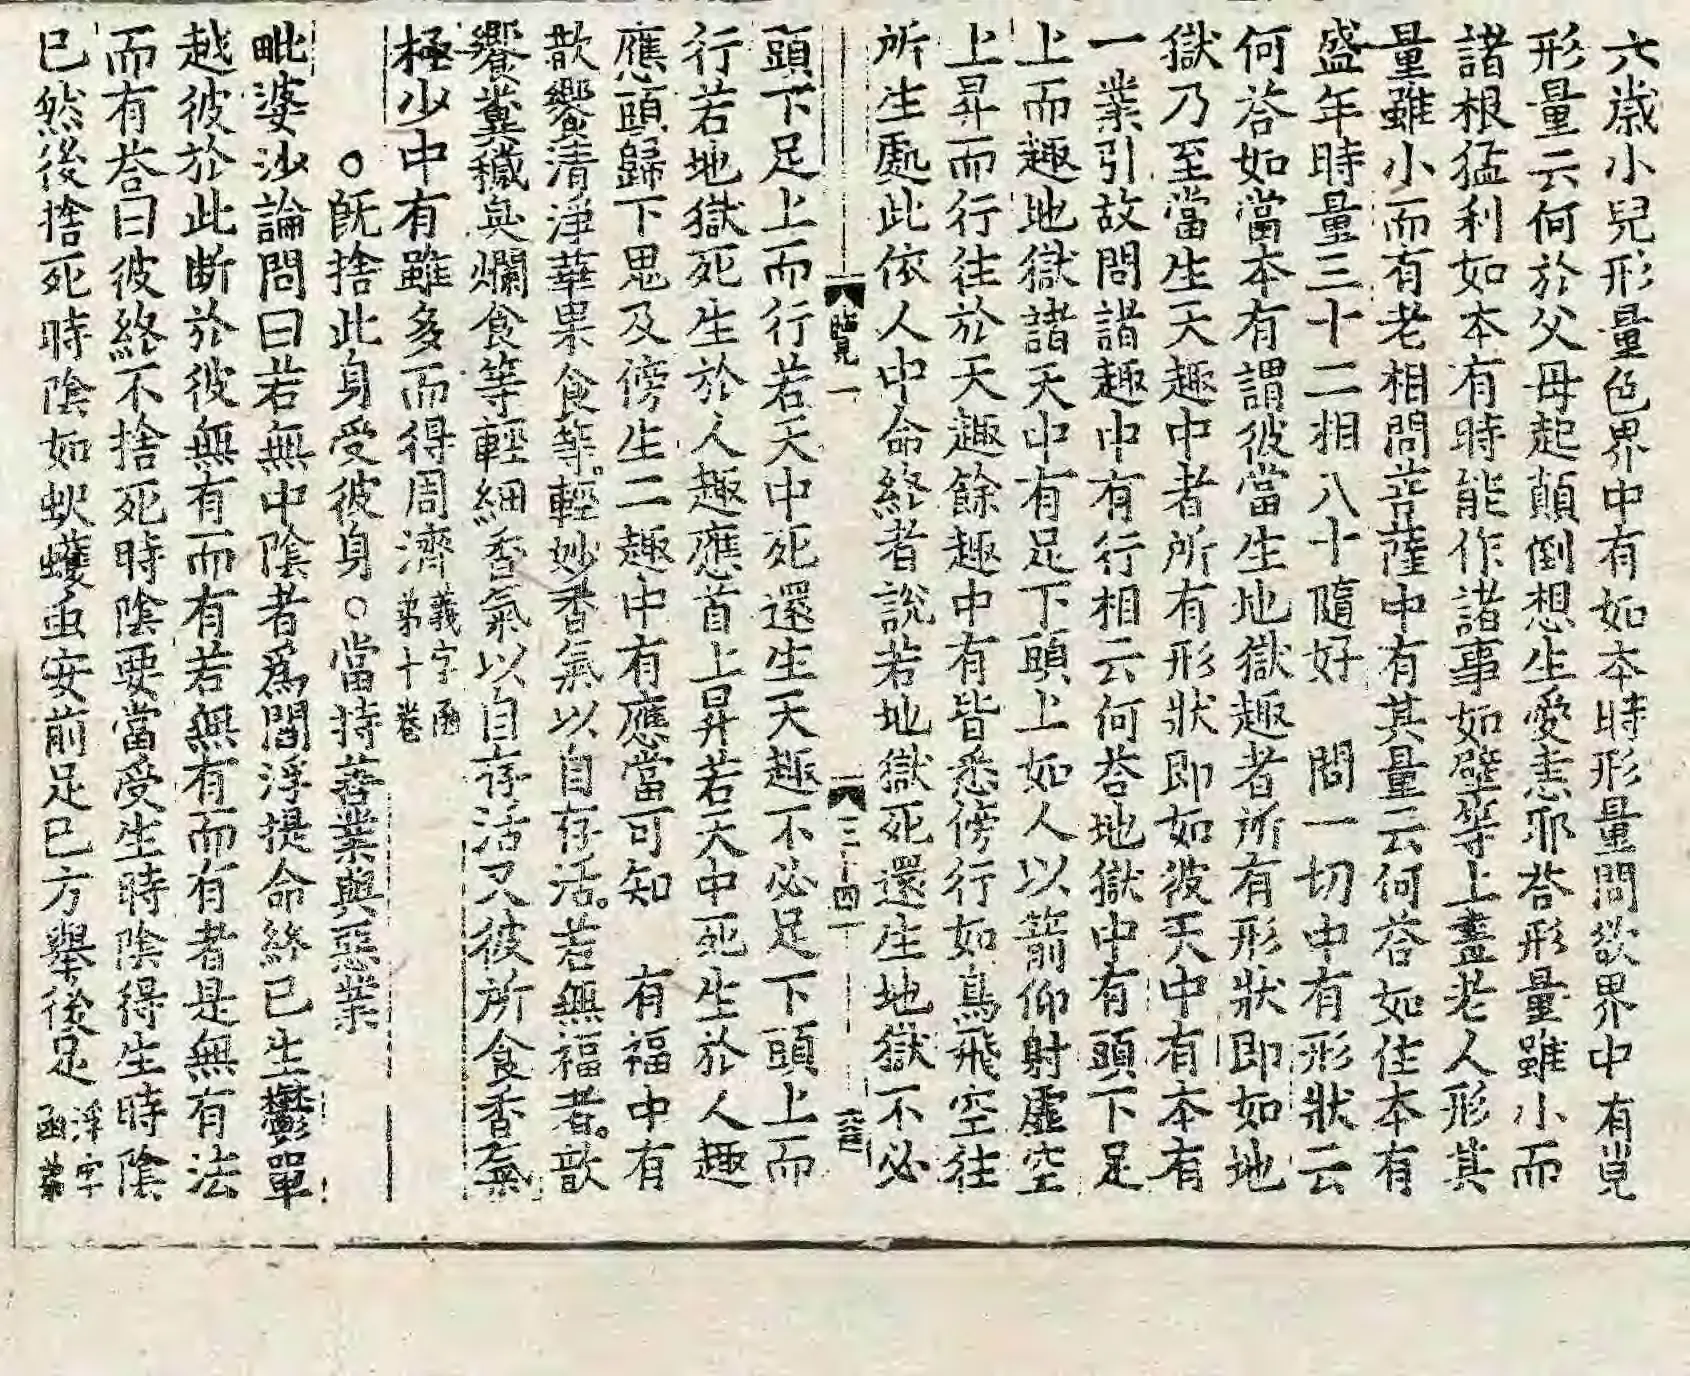 六歲小兒形量色界中有如本時形量問欲界中有皃
形量云何於父母起顛倒想生愛恚耶荅形量雖小而
諸根猛利如本有時能作諸事如壁等上畫老人形其
量雖小而有老相問菩薩中有其量云何荅如住本有
盛年時量三十二相八十隨好　問一切中有形狀云
何荅如當本有謂彼當生地獄趣者所有形狀即如地
獄乃至當生天趣中者所有形狀即如彼天中有本有
一業引故問諸趣中有行相云何荅地獄中有頭下足
上而趣地獄諸天中有足下頭上如人以箭仰射虛空
上昇而行往於天趣餘趣中有皆悉傍行如鳥飛空往
所生處此依人中命終者說若地獄死還生地獄不必
覽一　三十四
頭下足上而行若天中死還生天趣不必足下頭上而
行若地獄死生於人趣應首上昇若天中死生於人趣
應頭歸下思及傍生二趣中有應當可知　有福中有
歆饗清淨華果食等。輕妙香氣以自存活。若無福者。歆
饗糞穢臭爛食等輕細香氣以自存活又彼所食香氣
極少中有雖多而得周濟義字函第十卷
○旣捨此身受彼身○當持善業與惡業
毗婆沙論問曰若無中陰者爲閻浮提命終已生鬱單
越彼於此斷於彼無有而有若無有而有者是無有法
而有荅曰彼終不捨死時陰要當受生時陰得生時陰
已然後捨死時陰如蚇蠖虫安前足已方舉後足浮字函第